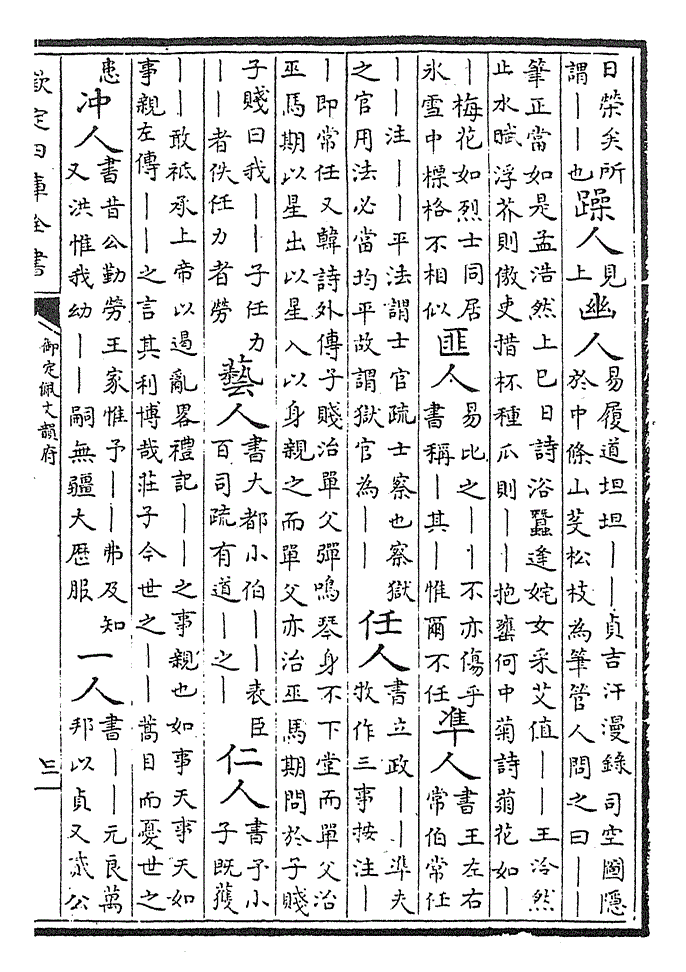 日榮矣所
謂丨丨也
躁人
見
上
幽人
易履道坦坦丨丨貞吉汗漫錄司空圖隱
於中條山芟松枝為筆管人問之曰丨丨
筆正當如是孟浩然上巳日詩浴蠶逢姹女采艾值丨丨王泠然
止水賦浮芥則傲吏措杯種瓜則丨丨抱甕何中菊詩菊花如丨
丨梅花如烈士同居
氷雪中標格不相似
匪人
易比之丨丨不亦傷乎
書稱丨其丨惟爾不任
凖人
書王左右
常伯常任
丨丨注丨丨丨平法謂士官疏士察也察獄
之官用法必當均平故謂獄官為丨丨
任人
書立政丨丨準夫
牧作三事按注丨
丨即常任又韓詩外傳子賤治單父彈鳴琴身不下堂而單父治
巫馬期以星出以星入以身親之而單父亦治巫馬期問於子賤
子賤曰我丨丨子任力
丨丨者佚任力者勞
藝人
書大都小伯丨丨表臣
百司疏有道丨之丨
仁人
書予小
子既獲
丨丨敢祗承上帝以遏亂畧禮記丨丨之事親也如事天事天如
事親左傳丨丨之言其利博哉莊子今世之丨丨蒿目而憂世之
患
沖人
書昔公勤勞王家惟予丨丨弗及知
又洪惟我幼丨丨嗣無疆大歷服
一人
書丨丨元良萬
邦以貞又公
欽定四庫全書
御定佩文韻府